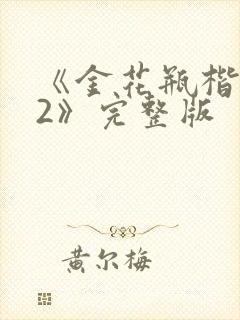 《金花瓶楷
2》完整版
黄尔梅